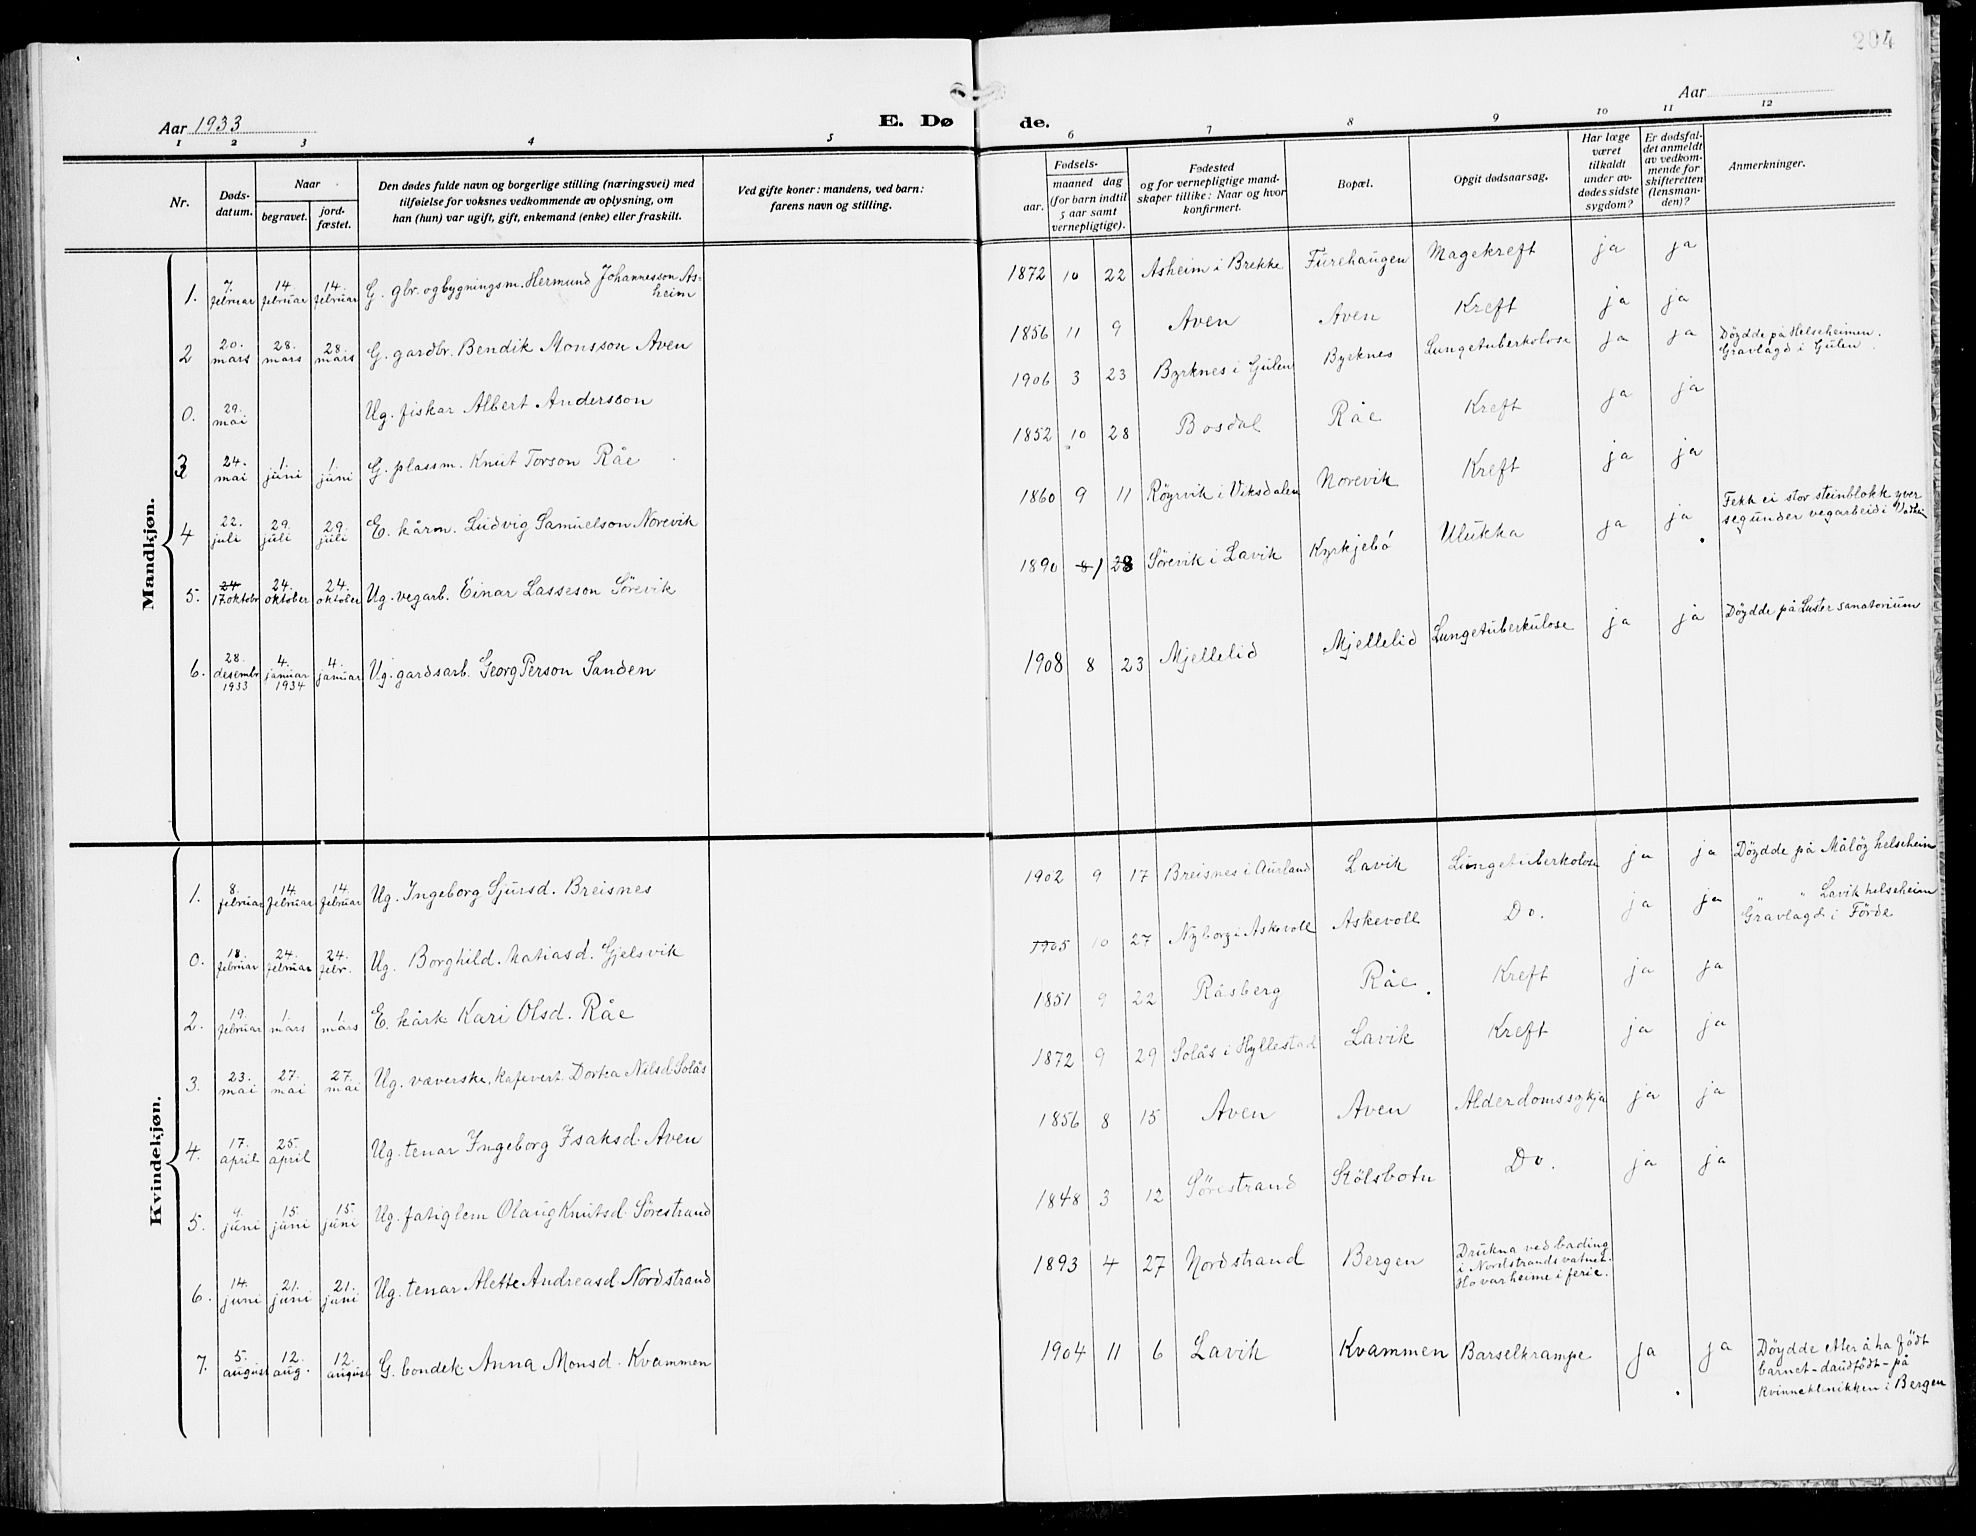 204
Aar 1933
E. Dø
de.
Aar
1 2 3 4 5 6 7 8 9 10 11 12
Nr.
Døds-
datum.
Naar
begravet.
jord-
fæstet.
Den dødes fulde navn og borgerlige stilling (næringsvei) med
tilføielse for voksnes vedkommende av oplysning, om
han (hun) var ugift, gift, enkemand (enke) eller fraskilt.
Ved gifte koner: mandens, ved barn:
farens navn og stilling.
Fødsels-
aar.
maaned dag
(for barn indtil
5 aar samt
vernepligtige).
Fødested
og for vernepligtige mand-
skaper tillike: Naar og hvor
konfirmert.
Bopæl.
Opgit dødsaarsag.
Har læge
været
tilkaldt
under av-
dødes sidste
sygdom?
Er dødsfal-
det anmeldt
av vedkom-
mende for
skifteretten
(lensman-
den)?
Anmerkninger.
Mandkjøn.
1. 7. februar 14. februar 14. februar G. gbr. og bygningsm. Hermund Johannesson As-
heim 1872 10 22 Asheim i Brekke Furehaugen Magekreft ja ja
2 20. mars 28. mars 28. mars G. gardbr. Bendik Monsson Aven 1856 11 9 Aven Aven Kreft ja ja
0. 29. mai Ug. fiskar Albert Andersson 1906 3 23 Byrknes i Gulen Byrknes Lungetuberkolose ja ja Döydde på Helseheimen.
Gravlagd i Gulen.
3 24. mai 1. juni 1. juni G. plassm. Knut Torson Råe 1852 10 28 Bosdal Råe Kreft ja ja
4 22. juli 29. juli 29. juli E. kårm. Ludvig Samuelson Norevik 1860 9 11 Röyrvik i Viksdalen Norevik Kreft ja ja
5. 24 17. oktobr 24. oktober 24. oktober Ug. vegarb. Einar Lasseson Sörevik 1890 8/ 28 Sörevik i Lavik Kyrkjebö Ulukka ja ja Fekk ei stor steinblokk yver
seg under vegarbeid i
6. 28. desembr 1933 4. januar 1934 4. januar Ug. gardsarb. Georg Person Sanden 1908 8 23 Mjellelid Mjellelid Lungetuberkulose ja ja Döydde på Luster sanatorium
Kvindekjøn.
1. 8. februar 14. februar 14. februar Ug. Ingeborg Sjursd. Breisnes 1902 9 17 Breisnes i Aurland Lavik Lungetuberkolose ja ja Döydde på Målöy helseheim
0. 18. februar 24. februar 24. febr. Ug. Borghild Matiasd. Gjelsvik 1905 10 27 Nyborg i Askevoll Askevoll Do. ja ja " Lavik helseheim
Gravlagd i Förde
2. 19. februar 1. mars 1. mars E. kårk. Kari Olsd. Råe 1851 9 22 Råsberg Råe Kreft ja ja
3. 23. mai 27. mai 27. mai Ug. væverske, kafevert. Dortea Nilsd. Solås 1872 9 29 Solås i Hyllestad Lavik Kreft ja ja
4. 17. april 25. april Ug. tenar Ingeborg Isaksd. Aven 1856 8 15 Aven Aven Alderdomssykja ja ja
5. 9. juni 15. juni 15. juni Ug. fatiglem Olaug Knutsd. Sörestrand 1848 3 12 Sörestrand Stölsbotn Do. ja ja
6. 14. juni 21. juni 21. juni Ug. tenar Alette Andreasd. Nordstrand 1893 4 27 Nordstrand Bergen Drukna ved bading
i Nordstrandsvatnet.
Ho var heime i ferie.
7. 5. august 12. aug. 12. august G. bondek. Anna Monsd. Kvammen 1904 11 6 Lavik Kvammen Barselkrampe ja ja Döydde etter å ha födt
barnet - daudfödt - på
kvinneklinikken i Bergen